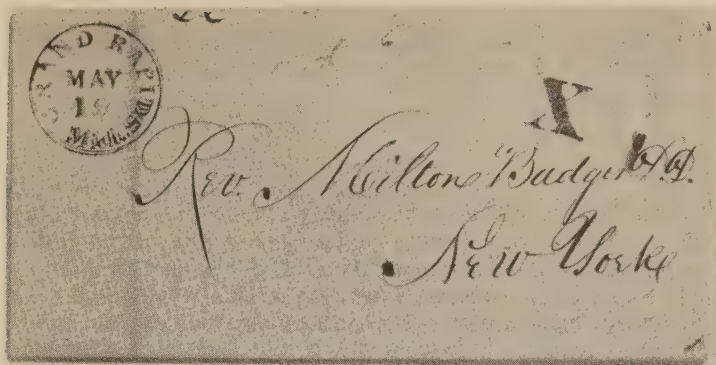 GRAND RAPIDS
MAY
15
Mich.
X
Rev. Milton Badger D.D.
New York